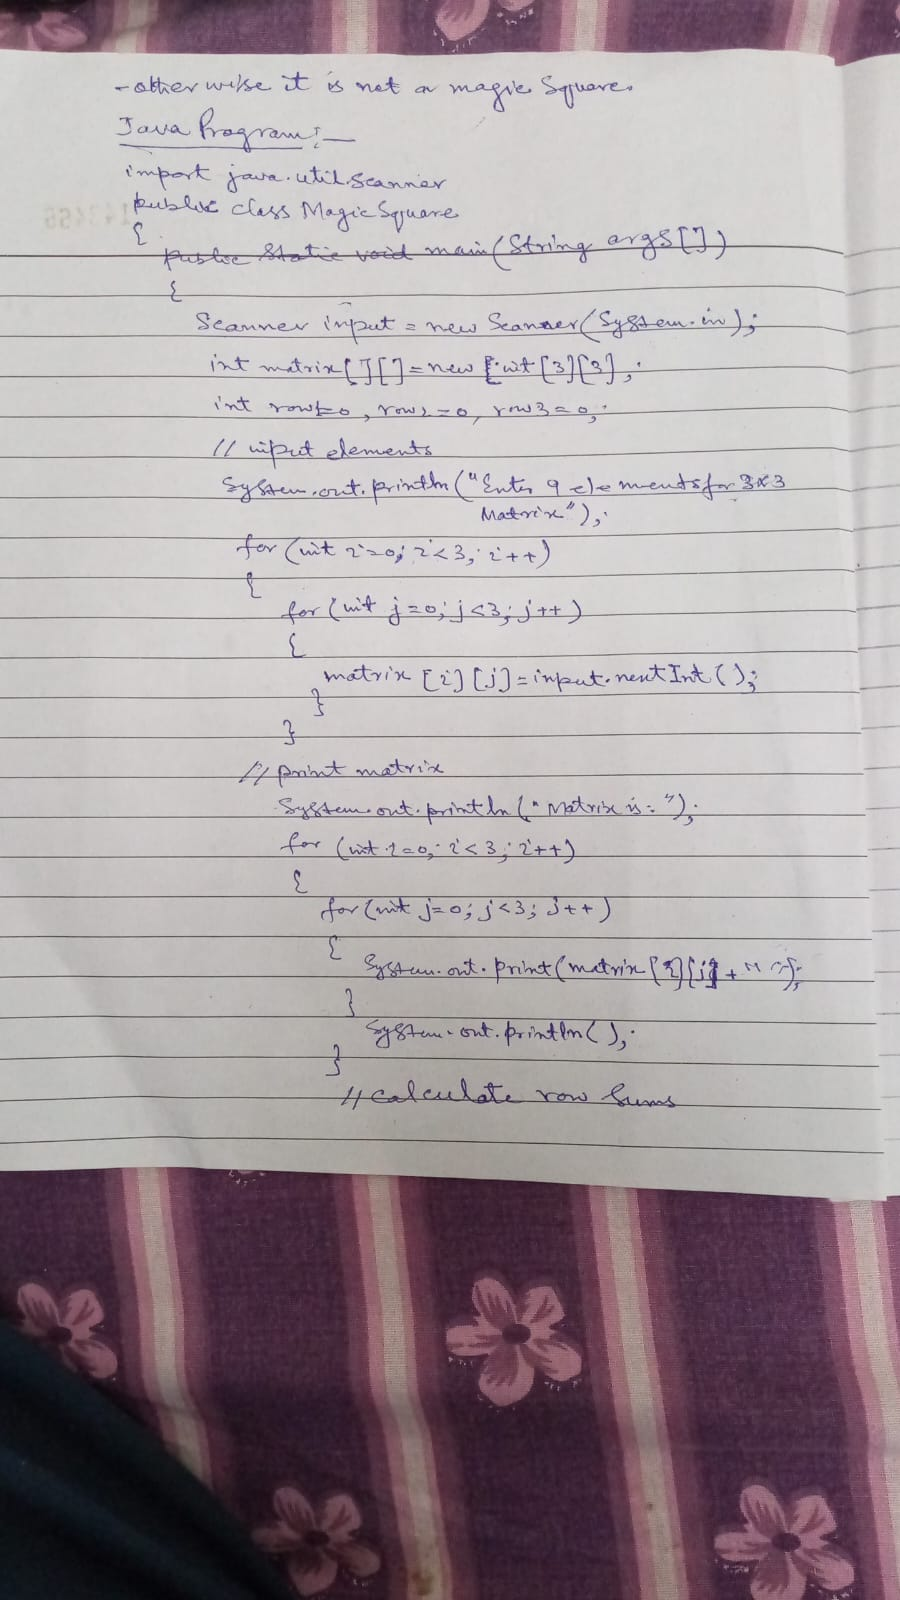 - otherwise it is not a magic Square.
Java Program:-
import java.util.Scanner
public class MagicSquare
{
public static void main(String args[])
{
Scanner input = new Scanner(System.in);
int matrix[][] = new int[3][3];
int row1=0, row2=0, row3=0;
// input elements
System.out.println("Enter 9 elements for 3x3
Matrix");
for (int i=0; i<3; i++)
{
for (int j=0; j<3; j++)
{
matrix [i][j]=input.nextInt();
}
}
// print matrix
System.out.println("Matrix is:");
for (int i=0; i<3; i++)
{
for (int j=0; j<3; j++)
{
System.out.print(matrix[i][j] + " ");
}
System.out.println();
}
// calculate row sums